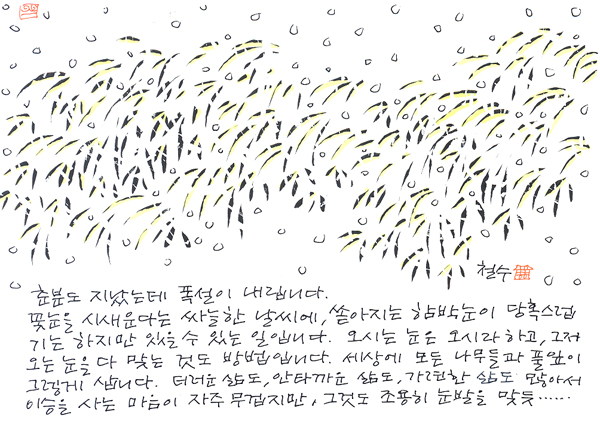 철수
춘분도 지났는데 폭설이 내립니다.
꽃눈을 시새운다는 싸늘한 날씨에, 쏟아지는 함박눈이 당혹스럽
기는 하지만 있을 수 있는 일입니다. 오시는 눈은 오시라 하고, 그저
오는 눈을 다 맞는 것도 방법입니다. 세상에 모든 나무들과 풀잎이
그렇게 삽니다. 더러운 삶도, 안타까운 삶도, 가련한 삶도 많아서
이승을 사는 마음이 자주 무겁지만, 그것도 조용히 눈발을 맞듯……